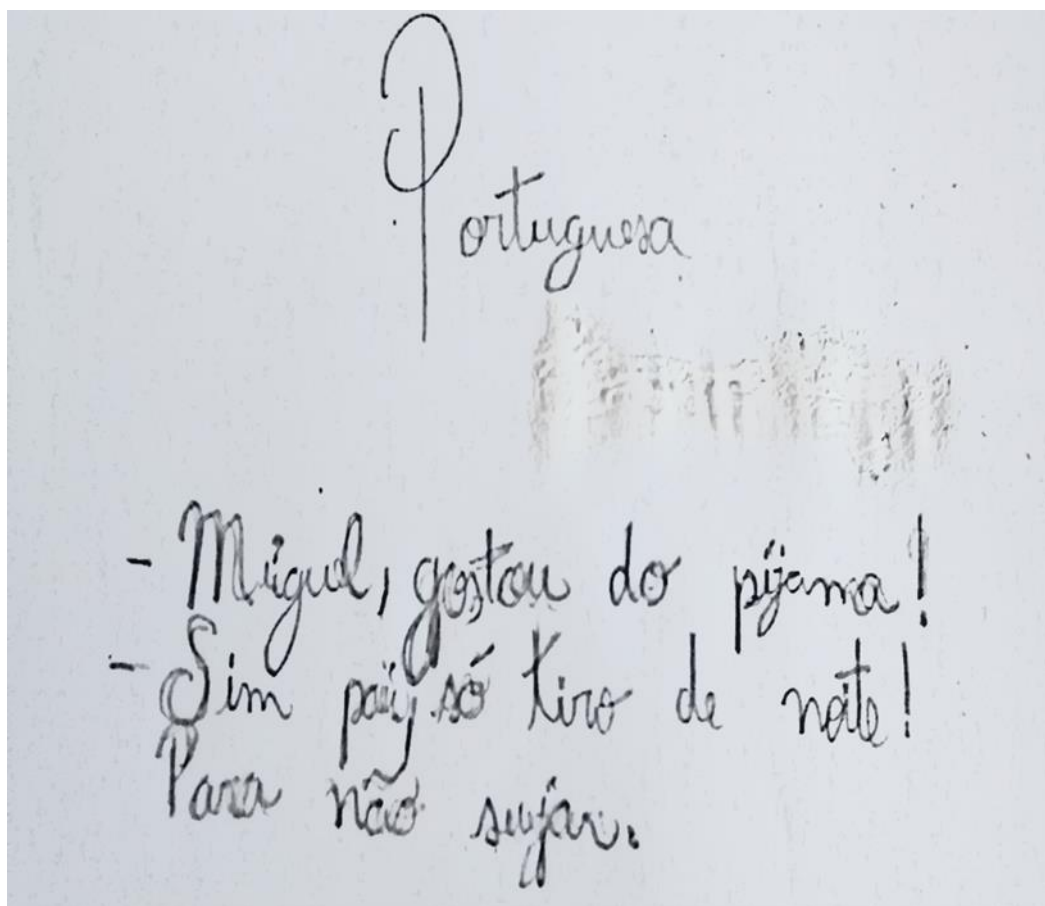 Portuguesa
- Miguel, gostou do pijama!
- Sim pai, só tiro de noite!
Para não sujar.